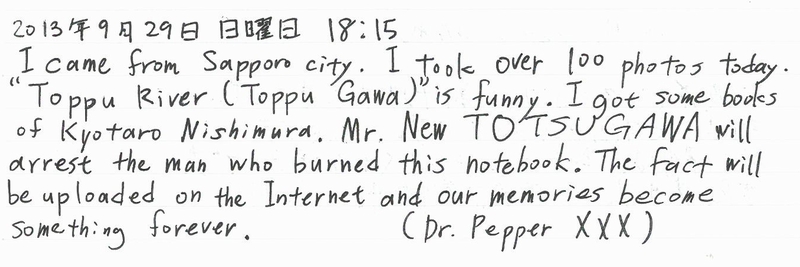 2013年9月29日 日曜日 18:15
I came from Sapporo city. I took over 100 photos today.
"Toppu River (Toppu Gawa)" is funny. I got some books
of Kyotaro Nishimura. Mr. New TOTSUGAWA will
arrest the man who burned this notebook. The fact will
be uploaded on the Internet and our memories become
something forever. (Dr. Pepper XXX)